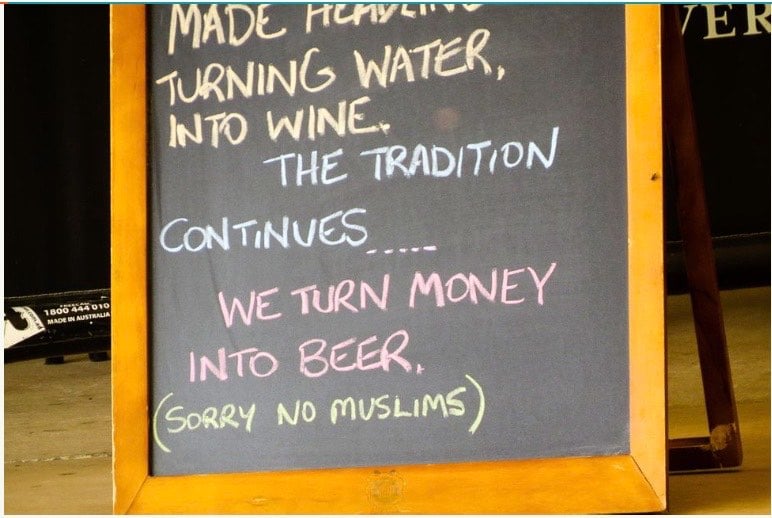 MADE HEADLINE
TURNING WATER,
INTO WINE.
THE TRADITION
CONTINUES.....
WE TURN MONEY
INTO BEER.
(SORRY NO MUSLIMS)
VER
1800 444 010
MADE IN AUSTRALIA